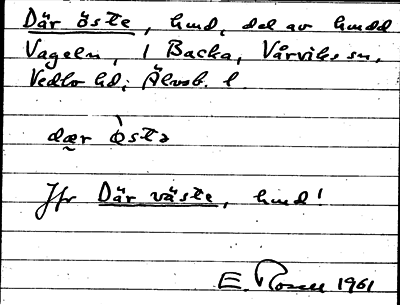 Där öste, hmd, del av hmdd
Vageln, 1 Backa, Vårviks sn,
Vedbo hd; Älvsb. l.
dær östə
Jfr Där väste, hmd!
E. Rosell 1961